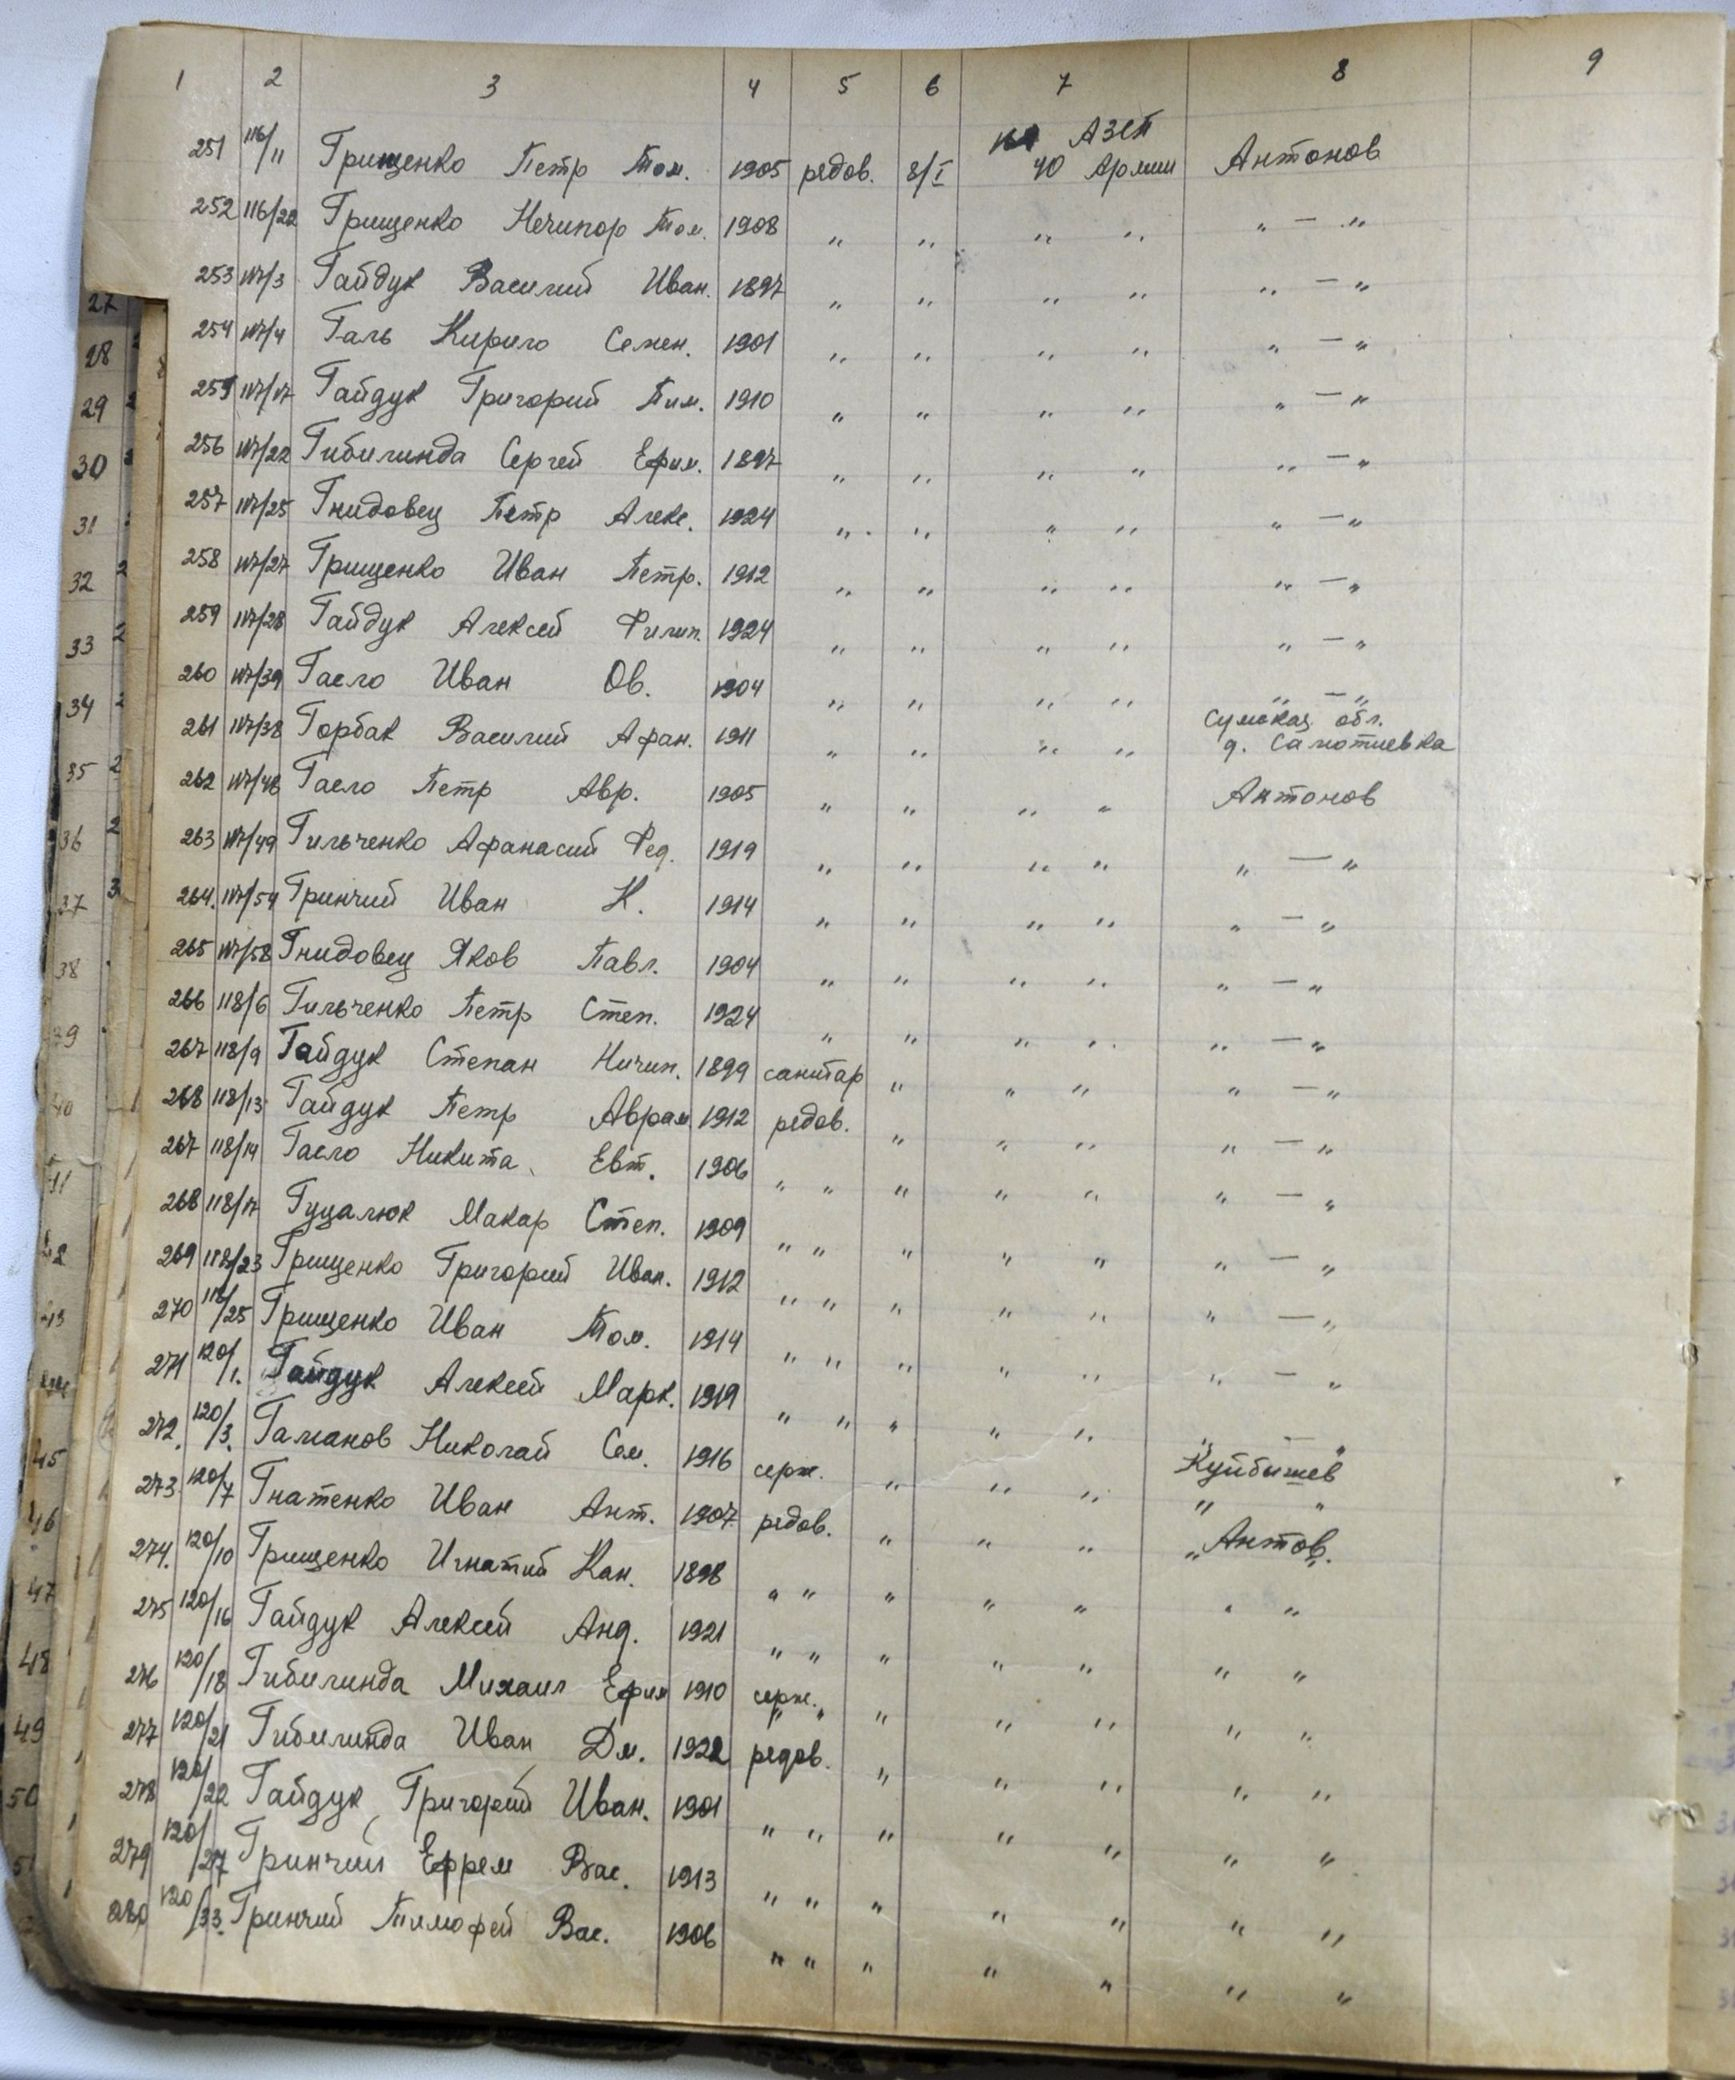 1 2 3 4 5 6 7 8 9
251 116/11 Грищенко Петр Том. 1905 рядов. 8/I на АЗСП 40 Армии Антонов
252 116/22 Грищенко Нечипор Том. 1908 „ „ „ „ „ — „
253 117/3 Гайдук Василий Иван. 1897 „ „ „ „ „ — „
254 117/4 Галь Кирило Семен. 1901 „ „ „ „ „ — „
255 117/17 Гайдук Григорий Пим. 1910 „ „ „ „ „ — „
256 117/22 Гибилинда Сергей Ефим. 1897 „ „ „ „ „ — „
257 117/25 Гнидовец Петр Алекс. 1924 „ „ „ „ „ — „
258 117/27 Грищенко Иван Петр. 1912 „ „ „ „ „ — „
259 117/28 Гайдук Алексей Филип. 1924 „ „ „ „ „ — „
260 117/39 Гасло Иван Ов. 1904 „ „ „ „ „ — „
261 117/38 Горбак Василий Афан. 1911 „ „ „ „ Сумская обл. д. Самотиевка
262 117/48 Гасло Петр Авр. 1905 „ „ „ „ Антонов
263 117/49 Гильченко Афанасий Фед. 1919 „ „ „ „ „ — „
264. 117/54 Гринчий Иван К. 1914 „ „ „ „ „ — „
265 117/58 Гнидовец Яков Павл. 1904 „ „ „ „ „ — „
266 118/6 Гильченко Петр Степ. 1924 „ „ „ „ „ — „
267 118/9 Гайдук Степан Ничип. 1899 санитар „ „ „ „ — „
268 118/13 Гайдук Петр Аврам. 1912 рядов. „ „ „ „ — „
267 118/14 Гасло Никита Евт. 1906 „ „ „ „ „ „ — „
268 118/17 Гуцалюк Макар Степ. 1909 „ „ „ „ „ „ — „
269 118/23 Грищенко Григорий Иван. 1912 „ „ „ „ „ „ — „
270 118/25 Грищенко Иван Том. 1914 „ „ „ „ „ „ — „
271 120/1. Гайдук Алексей Марк. 1919 „ „ „ „ „ „ — „
272. 120/3. Гаманов Николай Сем. 1916 серж. „ „ „ Куйбышев
273. 120/7 Гнатенко Иван Ант. 1907 рядов. „ „ „ „ Антов. „
274. 120/10 Грищенко Игнатий Кан. 1898 „ „ „ „ „ „ „
275 120/16 Гайдук Алексей Анд. 1921 „ „ „ „ „ „ „
276 120/18 Гибилинда Михаил Ефим 1910 серж. „ „ „ „ „
277 120/21 Гибилинда Иван Дм. 1922 рядов. „ „ „ „ „
278 120/22 Гайдук Григорий Иван. 1901 „ „ „ „ „ „ „
279 120/27 Гринчий Ефрем Вас. 1913 „ „ „ „ „ „ „
280 120/33. Гринчий Тимофей Вас. 1906 „ „ „ „ „ „ „
27
28
29
30
31
32
33
34
35
36
37
38
45
46
47
48
49
50